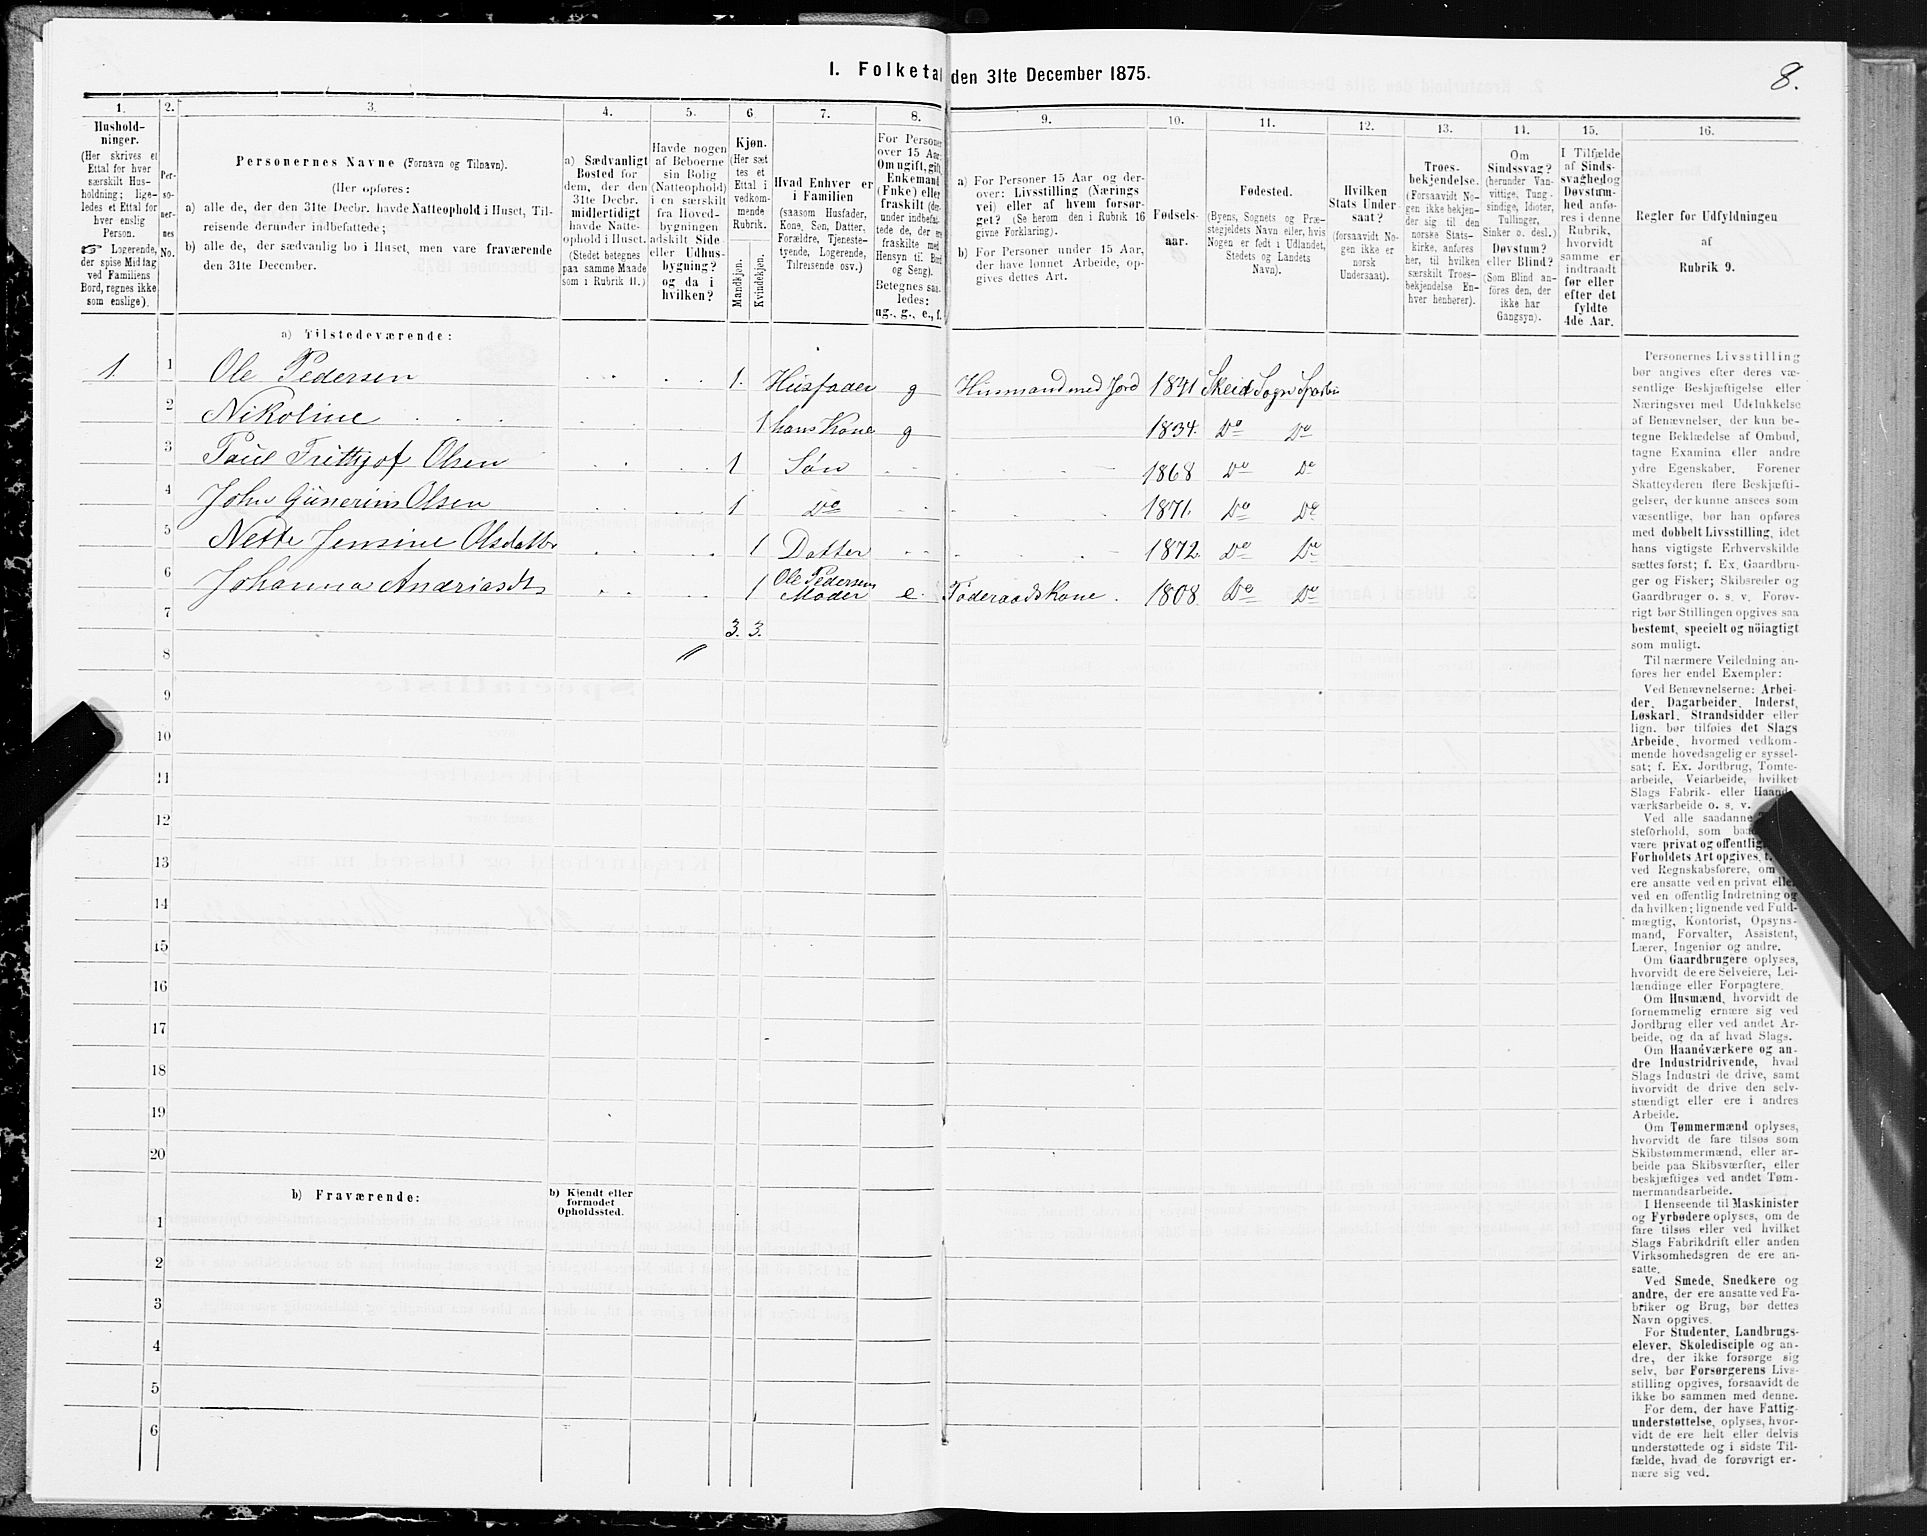 I. Folketal den 31te December 1875.
8.
1.
2.
3.
4.
5.
6
7.
8.
9.
10.
11.
12.
13.
14.
15.
16.
Hushold-
ninger.
(Her skrives et
Ettal for hver
særskilt Hus-
holdning; lige-
ledes et Ettal for
hver enslig
Person.
☞ Logerende,
der spise Middag
ved Familiens
Bord, regnes ikke
som enslige).
Per-
so-
ner-
nes
No.
Personernes Navne (Fornavn og Tilnavn).
(Her opføres:
a) alle de, der den 31te Decbr. havde Natteophold i Huset, Til-
reisende derunder indbefattede;
b) alle de, der sædvanlig bo i Huset, men vare fraværende
den 31te December.
a) Sædvanligt
Bosted for
dem, der den
31te Decbr.
midlertidigt
havde Natte-
ophold i Huset.
(Stedet betegnes
paa samme Maade
som i Rubrik 11.)
Havde nogen
af Beboerne
sin Bolig
(Natteophold)
i en særskilt
fra Hoved-
bygningen
adskilt Side-
eller Udhus-
bygning?
og da i
hvilken?
Kjøn.
(Her sæt
tes et
Ettal i
vedkom-
mende
Rubrik.
Mandkjøn.
Kvindekjøn.
Hvad Enhver er
i Familien
(saasom Husfader,
Kone, Søn, Datter,
Forældre, Tjeneste-
tyende, Logerende,
Tilreisende osv.)
For Personer
over 15 Aar:
Om ugift, gift,
Enkemand
(Enke) eller
fraskilt (der-
under indbefat-
tede de, der ere
fraskilte med
Hensyn til Bord
og Seng).
Betegnes saa-
ledes:
ug., g., e., f.
a) For Personer 15 Aar og der-
over: Livsstilling (Nærings
vei) eller af hvem forsør-
get? (Se herom den i Rubrik 16
givne Forklaring).
b) For Personer under 15 Aar,
der have lønnet Arbeide, op-
gives dettes Art.
Fødsels-
aar.
Fødested.
(Byens, Sognets og Præ-
stegjeldets Navn eller, hvis
Nogen er født i Udlandet,
Stedets og Landets
Navn).
Hvilken
Stats Under-
saat?
(forsaavidt No-
gen ikke er
norsk
Undersaat).
Troes-
bekjendelse.
(Forsaavidt No-
gen ikke bekjen-
der sig til den
norske Stats-
kirke, anføres
her, til hvilken
særskilt Troes-
bekjendelse En-
hver henhører).
Om
Sindssvag?
(herunder Van-
vittige, Tung-
sindige, Idioter,
Tullinger,
Sinker o. desl.)
Døvstum?
eller Blind?
(Som Blind an-
føres den, der
ikke har
Gangsyn).
I Tilfælde
af Sinds-
svaghed og
Døvstum-
hed anfø-
res i denne
Rubrik,
hvorvidt
samme er
indtraadt
før eller
efter det
fyldte
4de Aar.
Regler for Udfyldningen
af
Rubrik 9.
a) Tilstedeværende:
1. 1 Ole Pedersen 1. Husfader g Husmand med Jord 1841 Skeid Sogn Sparbu
2 Nikoline 1 hans Kone g 1834. Do Do
3 Paul Frithjof Olsen 1 Søn 1868 Do Do
4 John Gunerius Olsen 1 Do 1871. Do Do
5 Nette Jensine Olsdatter 1 Datter 1872. Do Do
6 Johanna Andriasdt 1 Ole Pedersens Moder e. Føderaadskone. 1808. Do Do
7 3. 3.
8
9
10
11
12
13
14
15
16
17
18
19
20
b) Fraværende:
b) Kjendt eller
formodet
Opholdssted.
1
2
3
4
5
6
Personernes Livsstilling
bør angives efter deres væ-
sentlige Beskjæftigelse eller
Næringsvei med Udelukkelse
af Benævnelser, der kun be-
tegne Beklædelse af Ombud,
tagne Examina eller andre
ydre Egenskaber. Forener
Skatteyderen flere Beskjæfti-
gelser, der kunne ansees som
væsentlige, bør han opføres
med dobbelt Livsstilling, idet
hans vigtigste Erhvervskilde
sættes først; f. Ex. Gaardbru-
ger og Fisker; Skibsreder og
Gaardbruger o. s. v. Forøv-
rigt bør Stillingen opgives saa
bestemt, specielt og nøiagtigt
som muligt.
Til nærmere Veiledning an-
føres her endel Exempler:
Ved Benævnelserne: Arbei-
der, Dagarbeider, Inderst,
Løskarl, Strandsidder eller
lign. bør tilføies det Slags
Arbeide, hvormed vedkom-
mende hovedsagelig er syssel-
sat; f. Ex. Jordbrug, Tomte-
arbeide, Veiarbeide, hvilket
Slags Fabrik- eller Haand-
værksarbeide o. s. v.
Ved alle saadanne
steforhold, som baa
være privat og offentlig
Forholdets Art opgives,
ved Regnskabsførere, om
ere ansatte ved en privat eller
ved en offentlig Indretning og
da hvilken; lignende ved Fuld-
mægtig, Kontorist, Opsyns-
mand, Forvalter, Assistent,
Lærer, Ingeniør og andre.
Om Gaardbrugere oplyses,
hvorvidt de ere Selveiere, Lei-
lændinge eller Forpagtere.
Om Husmænd, hvorvidt de
fornemmelig ernære sig ved
Jordbrug eller ved andet Ar-
beide, og da af hvad Slags.
Om Haandværkere og an-
dre Industridrivende, hvad
Slags Industri de drive, samt
hvorvidt de drive den selv-
stændigt eller ere i andres
Arbeide.
Om Tømmermænd oplyses,
hvorvidt de fare tilsøs som
Skibstømmermænd, eller ar-
beide paa Skibsværfter, eller
beskjæftiges ved andet Tøm-
mermandsarbeide.
I Henseende til Maskinister
og Fyrbødere oplyses, om de
fare tilsøs eller ved hvilket
Slags Fabrikdrift eller anden
Virksomhedsgren de ere an-
satte.
Ved Smede, Snedkere og
andre, der ere ansatte ved Fa-
briker og Brug, bør dettes
Navn opgives.
For Studenter, Landbrugs-
elever, Skoledisciple og an-
dre, der ikke forsørge sig
selv, bør Forsørgerens Livs-
stilling opgives, forsaavidt de
ikke bo sammen med denne.
For dem, der have Fattig-
understøttelse, oplyses, hvor-
vidt de ere helt eller delvis
understøttede og i sidste Til-
fælde, hvad de forøvrigt er-
nære sig ved.